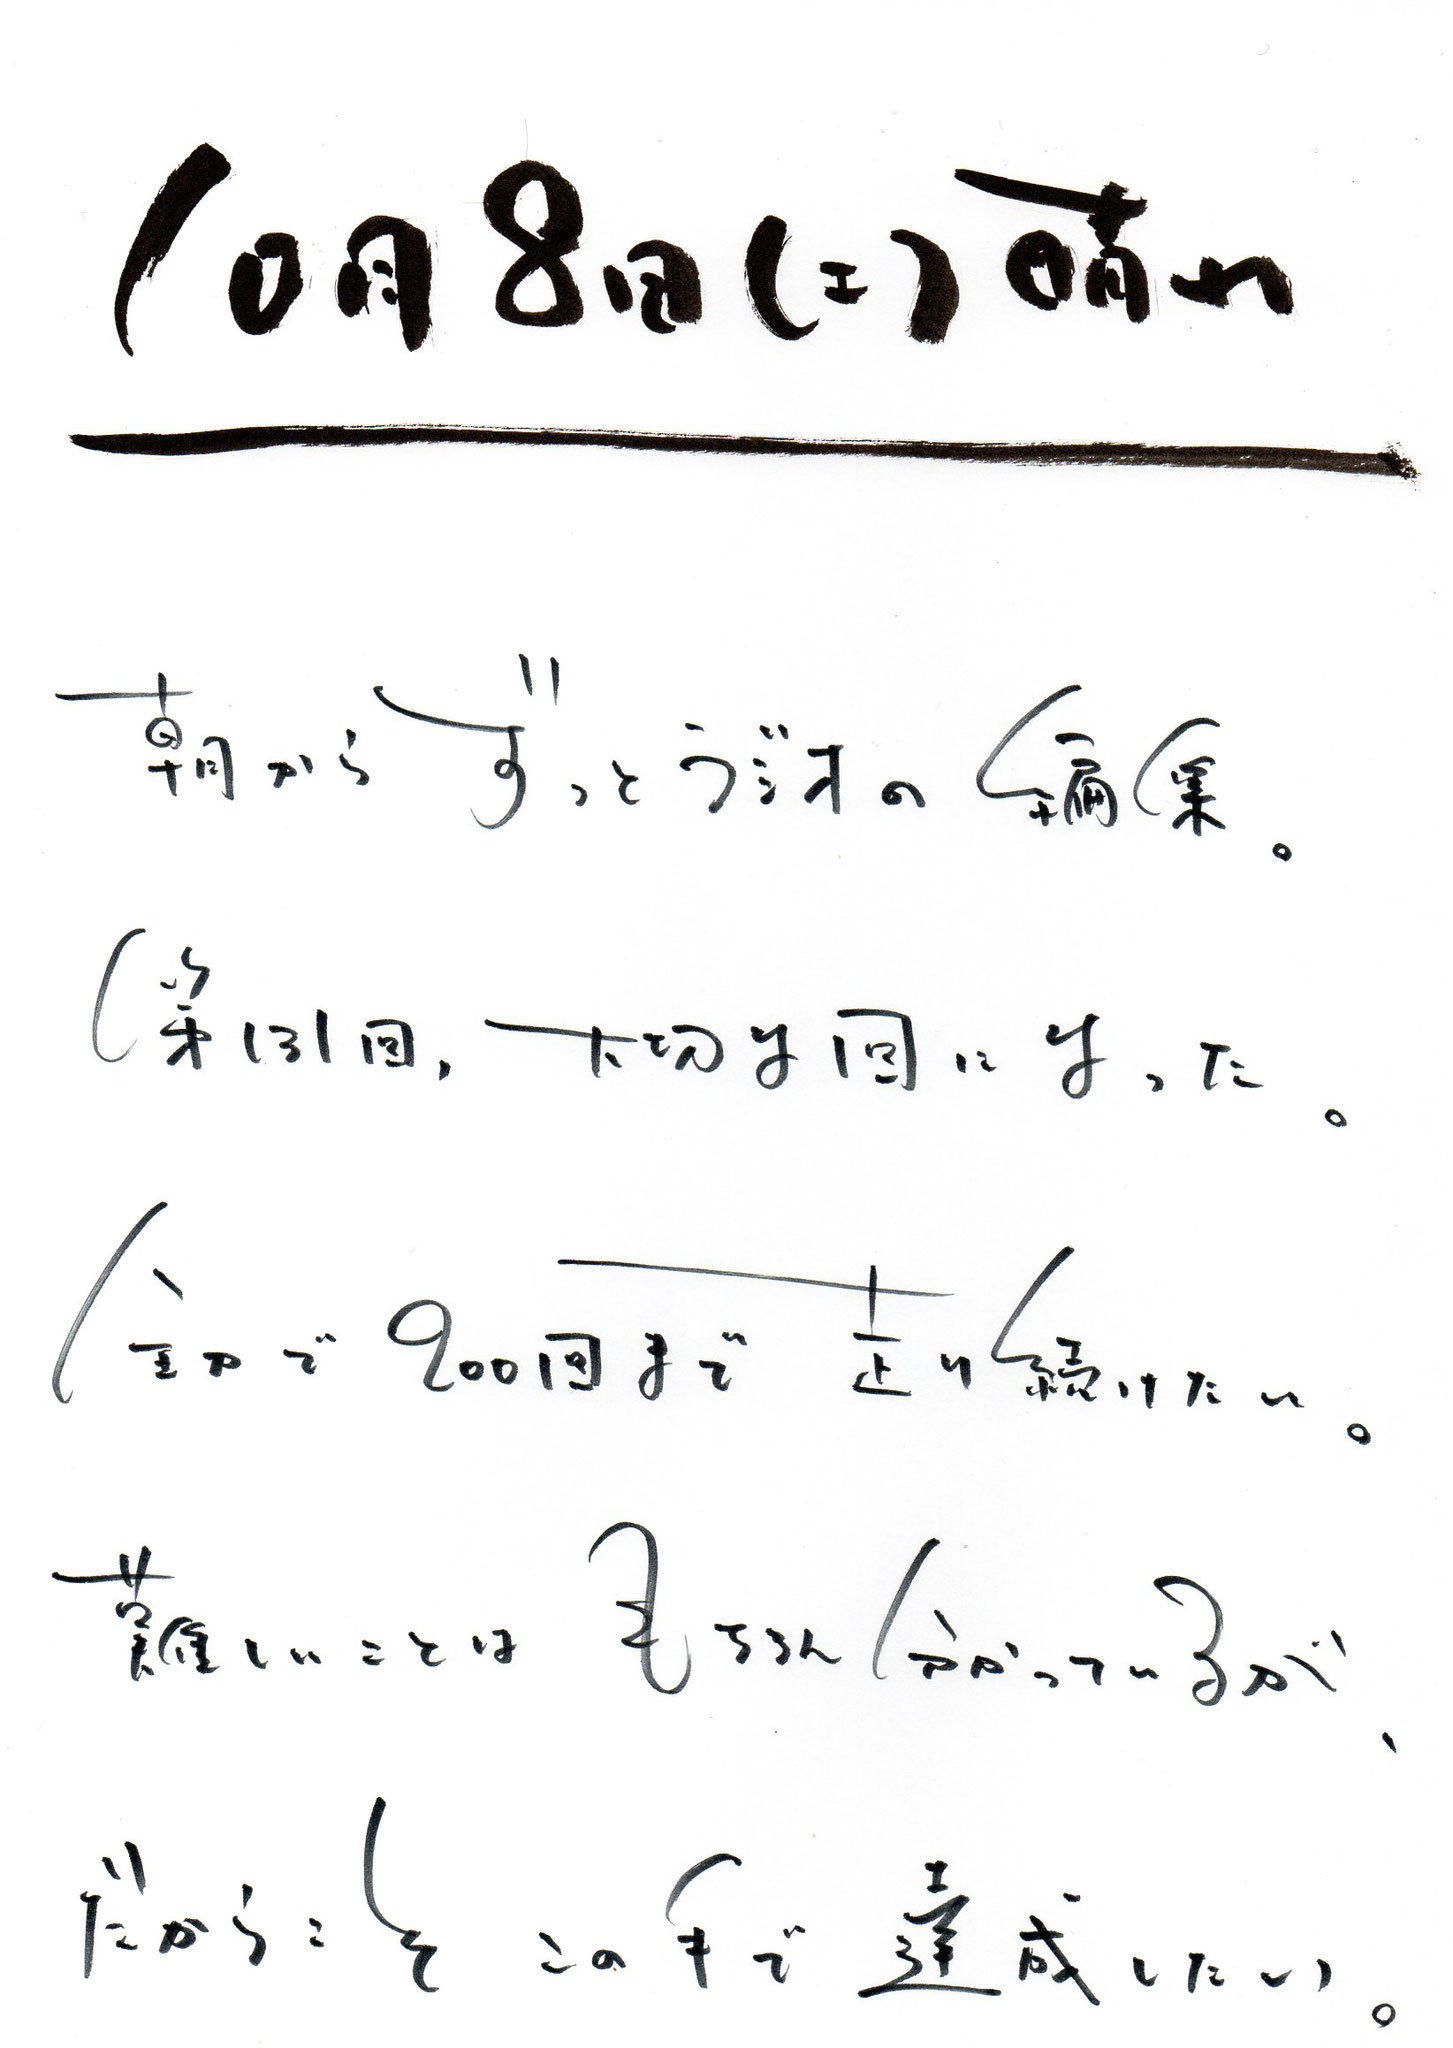 10月8日(土)晴れ
朝からずっとラジオの編集。
第131回,大切な回になった。
全力で900回まで走り続けたい。
難しいことはもちろん分かっているが、
だからこそこの手で達成したい。